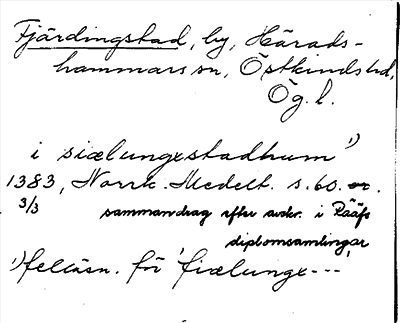 Fjärdingstad, by, Härads-
hammars sn, Östkinds hd,
Ög. l.
i siælungxstadhum 1)
1383, Norrk. Medelt. s. 60.
3/3 sammandrag efter avskr. i Rääfs
diplomsamlingar
1) felläsn. för 'fiælungx---'